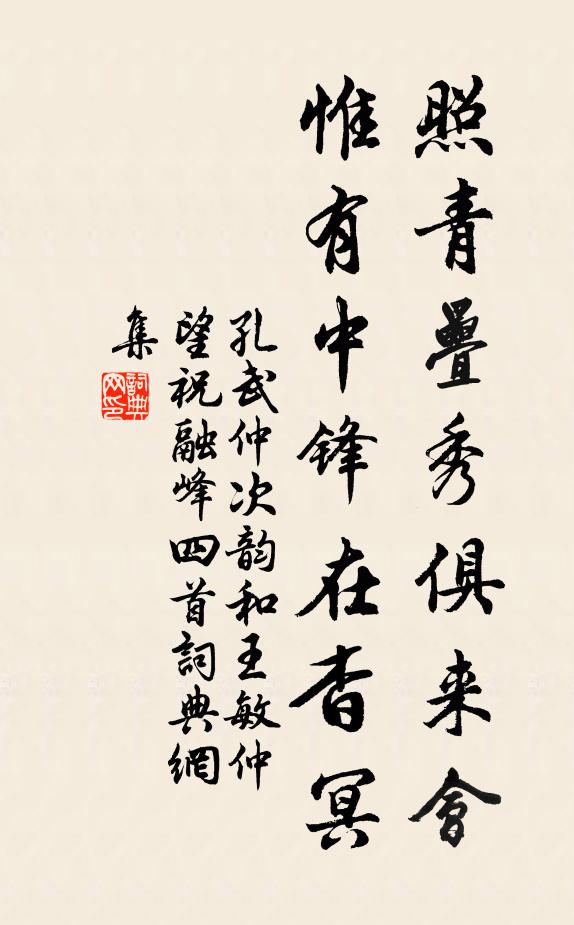 照青疊秀俱来會
惟有中锋在杳冥
孔武仲次韵和王敏仲
望祝融峰四首詞典網
集
詞典
网印